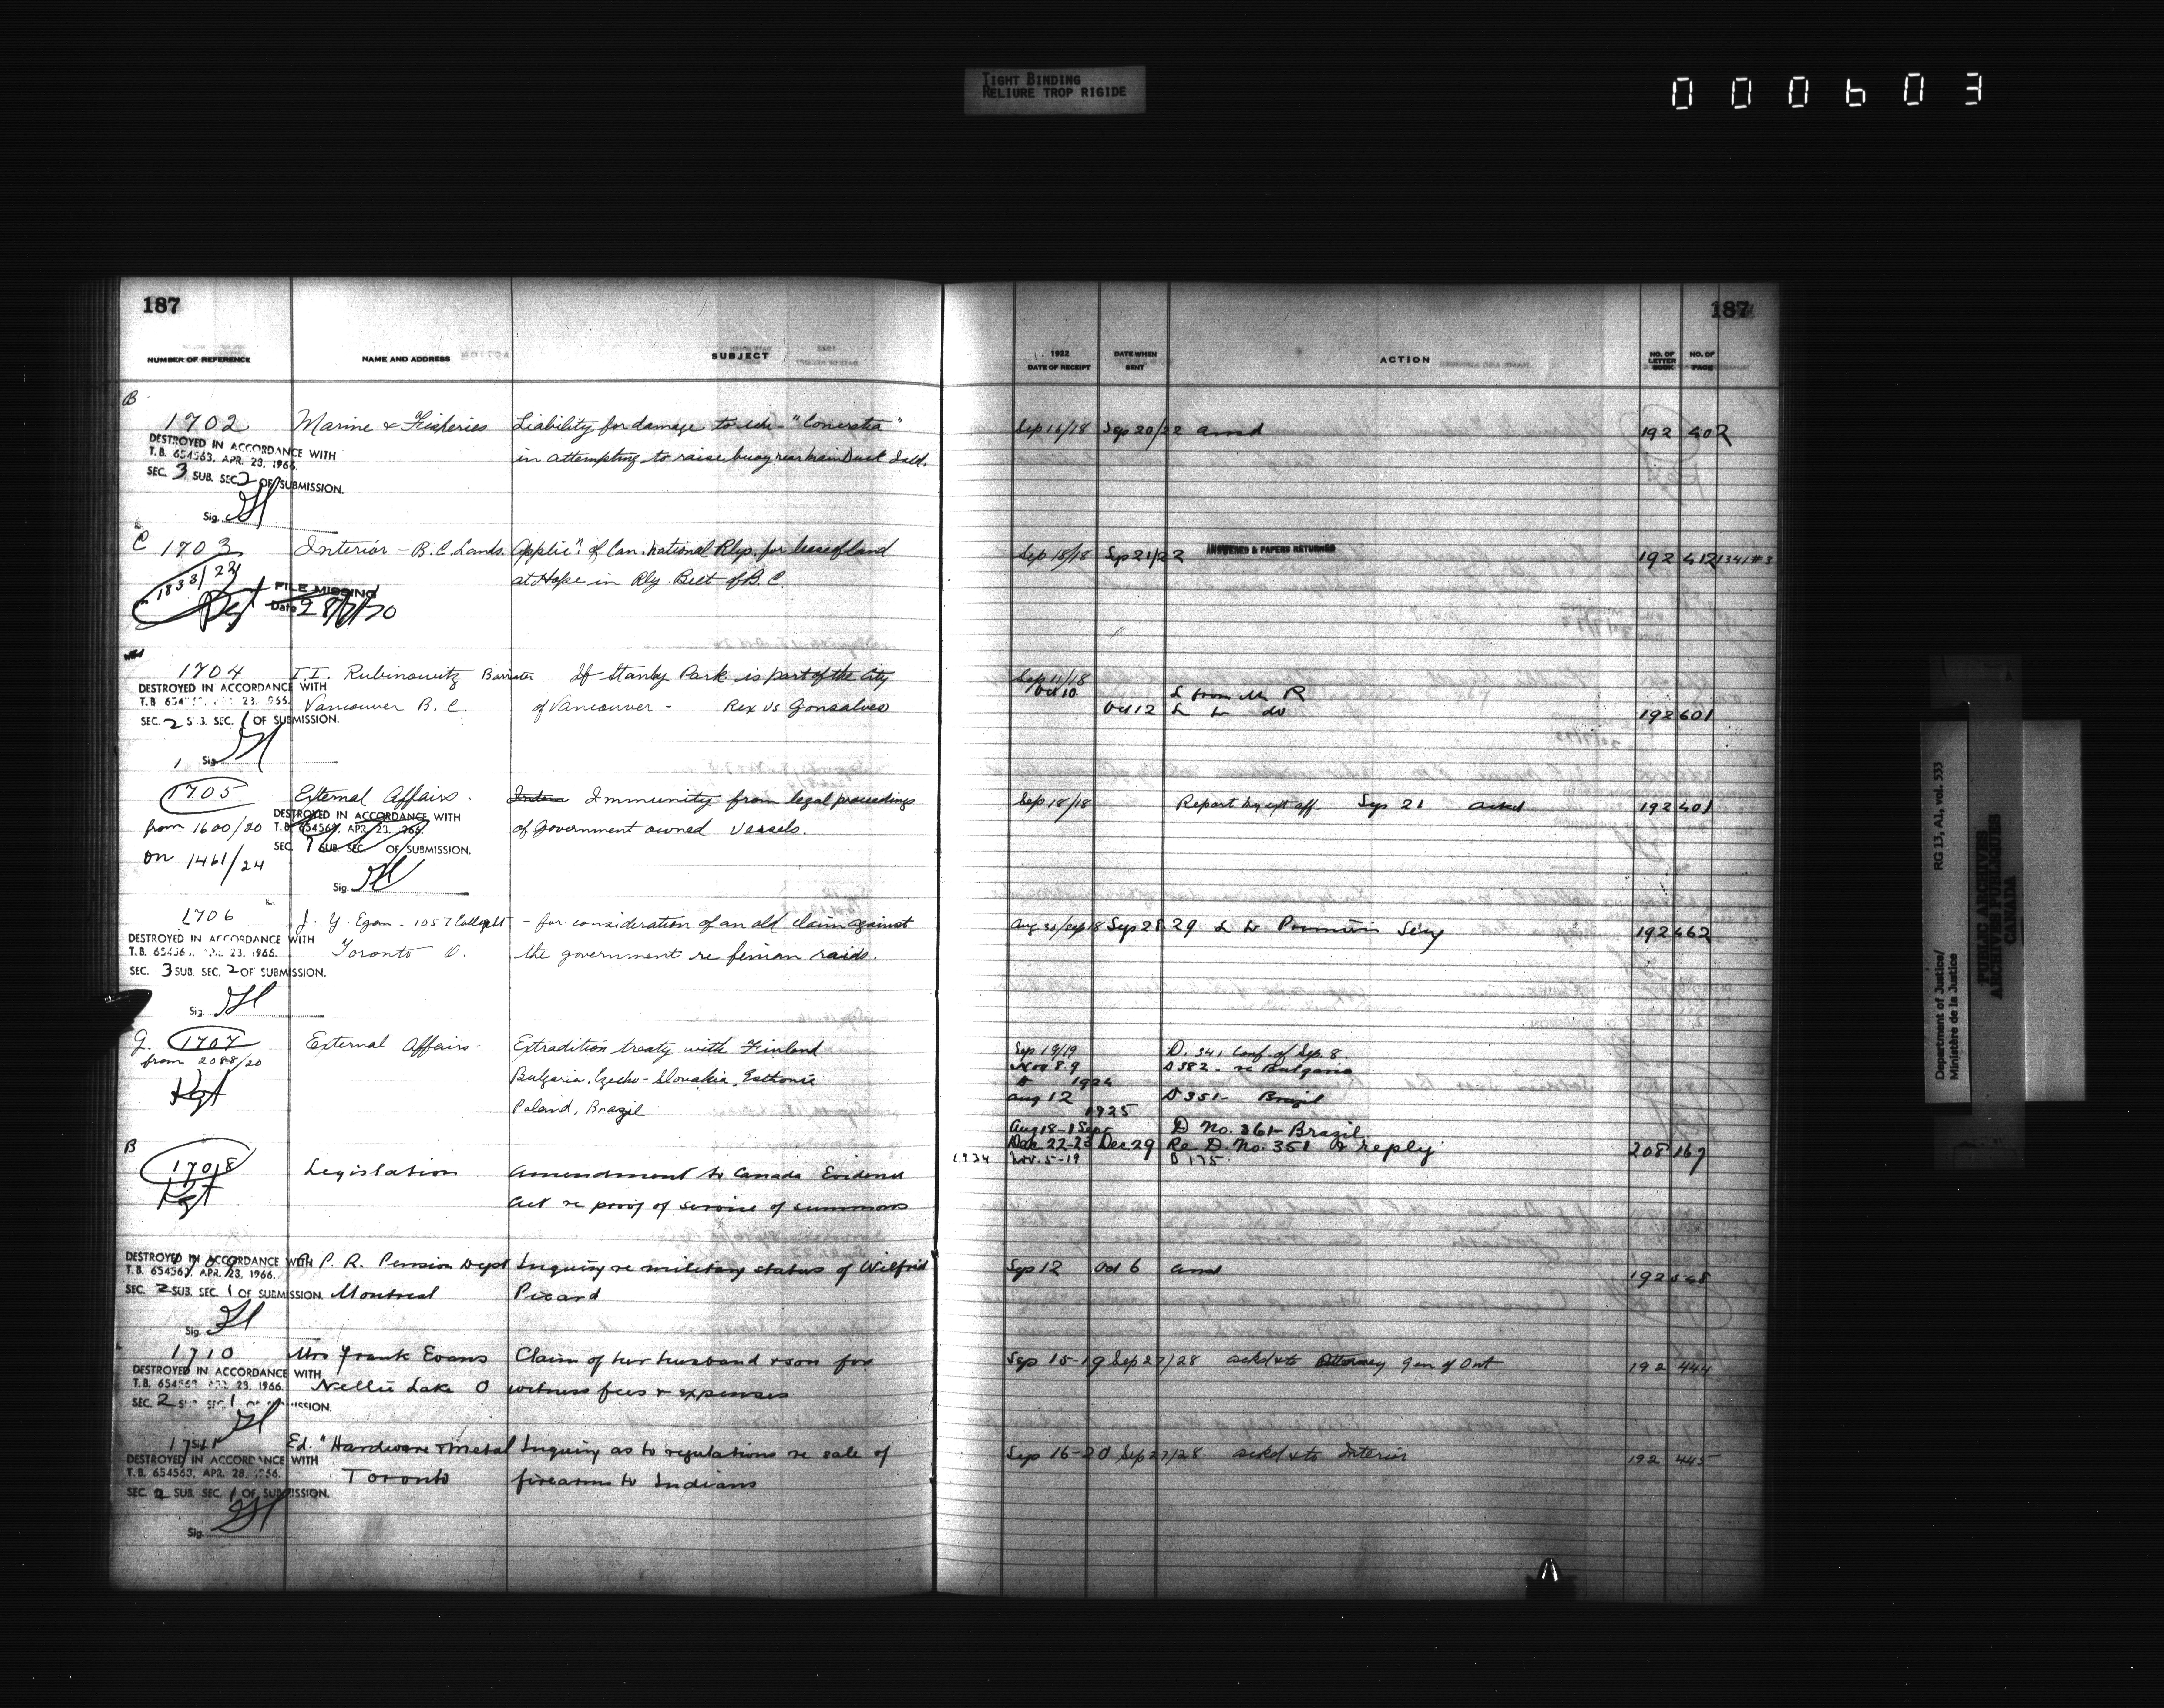 TIGHT BINDING
RELIURE TROP RIGIDE
000603
187
187
NUMBER OF REFERENCE NAME AND ADDRESS SUBJECT 1922 DATE OF RECEIPT DATE WHEN SENT ACTION NO. OF LETTER BOOK NO. OF PAGE
B
1702 Marine & Fisheries Liability for damage to sch. "Concretia" Sep 16/18 Sep 20/22 ansd 192 402
in attempting to raise buoy near main Duck Isld.
DESTROYED IN ACCORDANCE WITH
T.B. 654563, APR. 23, 1966.
SEC. 3 SUB. SEC. 2 OF SUBMISSION.
Sig.
C 1703 Interior - B.C. Lands. Applicn. of Can. National Rlys. for lease of land Sep 18/18 Sep 21/22 ANSWERED & PAPERS RETURNED 192 412 1341#3
at Hope in Rly. Belt of B.C.
1833/22
FILE MISSING
Date
1704 I.I. Rubinowitz Barrister. If Stanley Park is part of the City Sep 11/18
Oct 10 L from Mr R
Vancouver B.C. of Vancouver - Rex vs Gonsalves Oct 12 L to do 192 601
DESTROYED IN ACCORDANCE WITH
SEC. 2 SUB. SEC. 1 OF SUBMISSION.
Sig.
1705 External Affairs. Immunity from legal proceedings Sep 18/18 Report by ext aff. Sep 21 ackd 192 401
from 1600/20 of Government owned vessels.
on 1461/24
DESTROYED IN ACCORDANCE WITH
T.B. 654563, APR. 23, 1966.
SEC. SUB. SEC. OF SUBMISSION.
Sig.
1706 J. Y. Egan - 1057 College St - for consideration of an old claim against Aug 30/Sep 18 Sep 28.29 L to 192 462
Toronto O. the government re fenian raids.
DESTROYED IN ACCORDANCE WITH
T.B. 65456 23, 1966.
SEC. 3 SUB. SEC. 2 OF SUBMISSION.
Sig.
G. 1707 External Affairs - Extradition treaty with Finland Sep 19/19 D. 341 Conf. of Sep. 8.
from 2088/20 Bulgaria, Czecho-Slovakia, Esthonia Nov 8.9 D 382 - re Bulgaria
Poland, Brazil 1924
Aug 12 D 351 - Brazil
1925
Aug 18-1 Sept D No. 361 - Brazil
Dec 22-23 Dec 29 Re D. No. 351 & reply 208 167
1934 Nov. 5-19 D 175.
B
1708 Legislation Amendment to Canada Evidence
Act re proof of service of summons
1709 P. R. Pension Dept Inquiry re military status of Wilfrid Sep 12 Oct 6 ansd 192 548
Montreal Picard
DESTROYED IN ACCORDANCE WITH
T.B. 654563, APR. 23, 1966.
SEC. 2 SUB. SEC. 1 OF SUBMISSION.
Sig.
1710 Mrs Frank Evans Claim of her husband & son for Sep 15-19 Sep 27/28 ackd & to Attorney Gen of Ont 192 444
Nellie Lake O witness fees & expenses
DESTROYED IN ACCORDANCE WITH
T.B. 654563 23, 1966.
SEC. 2
1711 Ed. "Hardware & Metal Inquiry as to regulations re sale of Sep 16-20 Sep 27/28 ackd & to Interior 192 445
Toronto firearms to Indians
DESTROYED IN ACCORDANCE WITH
T.B. 654563, APR. 28, 1966.
SEC. 2 SUB. SEC. 1 OF SUBMISSION.
Sig.
Department of Justice/
Ministère de la Justice
RG 13, A1, vol. 533
PUBLIC ARCHIVES
ARCHIVES PUBLIQUES
CANADA